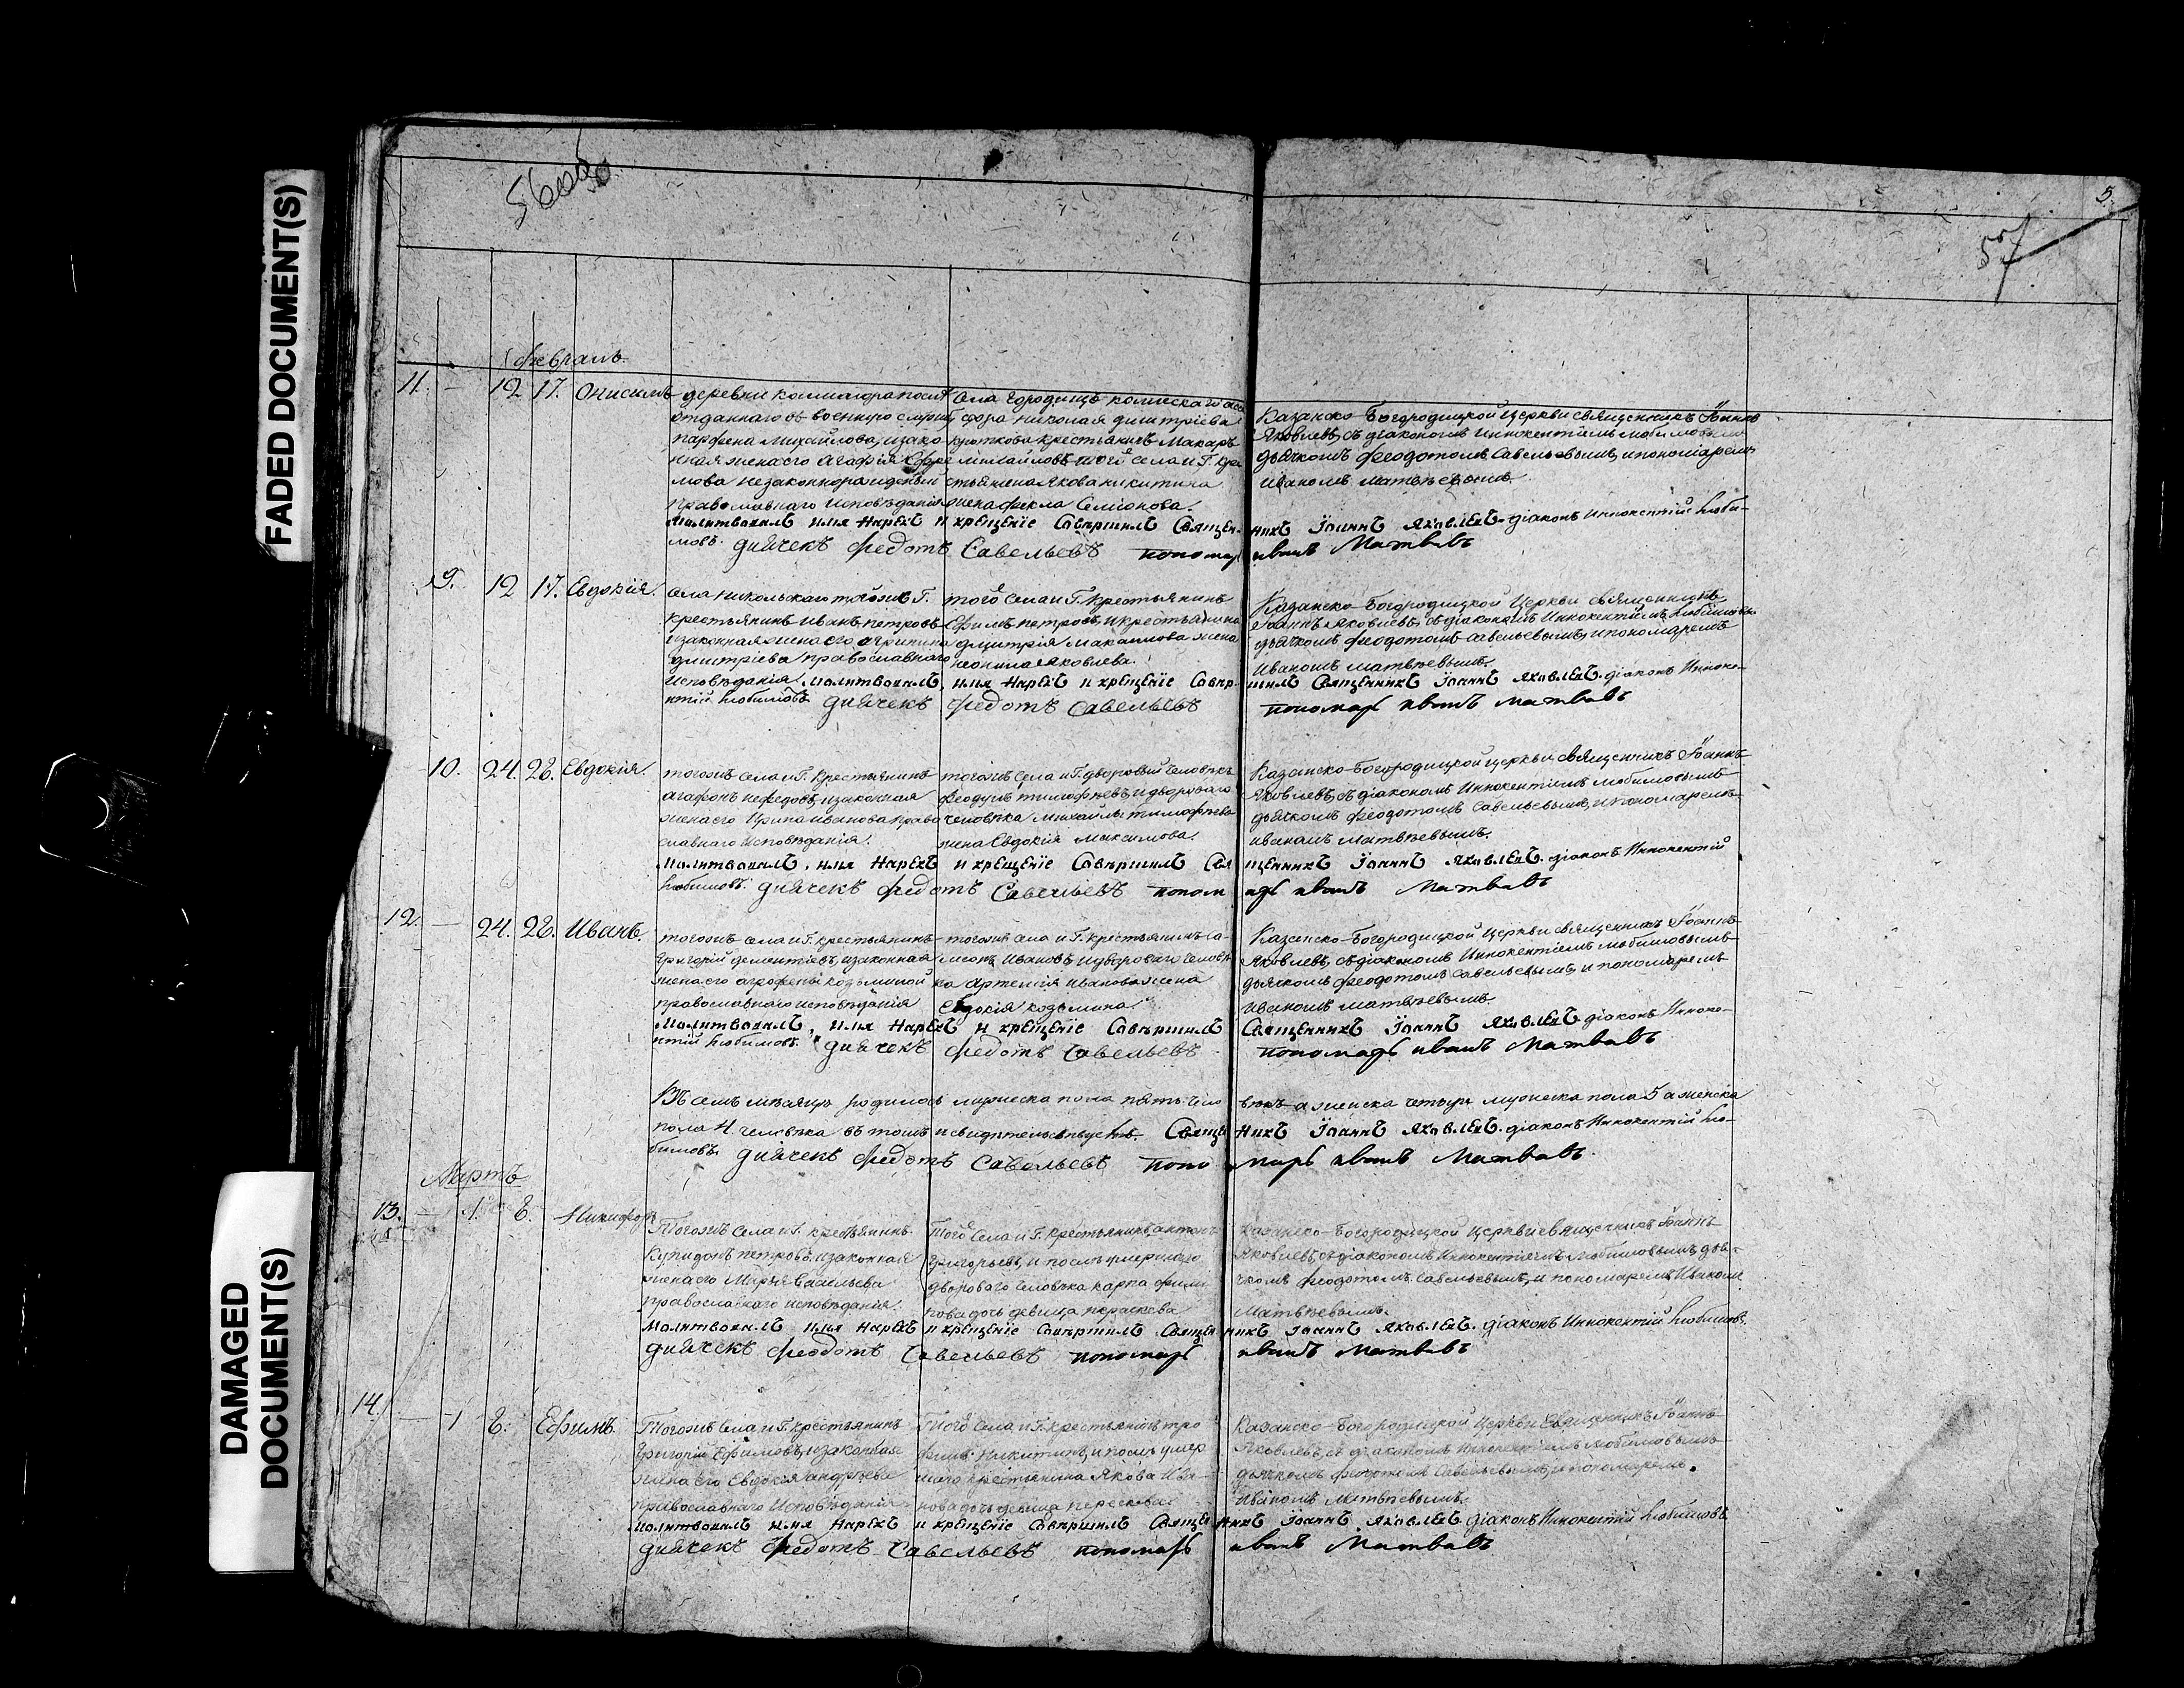 FADED DOCUMENT(S)
DAMAGED
DOCUMENT(S)
5.
57
Февраль.
11. — 12 17. Онисимъ
отданнаго въ военную службу
Парфена Михайлова, и зако-
нная жена его Агафія Ефре
мова незаконнорожденный
православнаго исповѣданія
села Городищъ
сора Николая Дмитріева
Кроткова крестьянинъ Макаръ
Михайловъ той села и Г. кре
стьянина Якова Никитина
жена Фекла Семіонова.
Казанско-Богородицкой церкви священникъ Іоаннъ
Яковлевъ, съ діакономъ Иннокентіемъ Любимовымъ
дьячкомъ Феодотомъ Савельевымъ, и пономаремъ
Иваномъ Матвѣевымъ.
Молитвовалъ имя нарекъ и крещеніе совершилъ Священ-никъ Іоаннъ Яковлевъ. діаконъ Иннокентій Люби-
мовъ. диячекъ Федотъ Савельевъ пономарь иванъ Матвѣвъ
9. 12 17. Евдокія.
села Никольскаго тогожъ Г.
крестьянинъ Иванъ Петровъ
и законная жена его Агрипина
Дмитріева православнаго
исповѣданія
того села и Г. крестьянинъ
Ефимъ Петровъ, и крестьянина
Дмитрія Максимова жена
Неонила Яковлева.
Казанско-Богородицкой Церкви священникъ
Іоаннъ Яковлевъ, съ діакономъ Иннокентіемъ Любимовы
дьячкомъ Феодотомъ Савельевымъ, и пономаремъ
Иваномъ Матвѣевымъ.
Молитвовалъ, имя нарекъ и крещеніе совер-шилъ Священникъ Іоаннъ Яковлевъ. діаконъ Инноке-
нтій Любимовъ. диячекъ Федотъ Савельевъ пономарь иванъ Матвѣвъ
10. 24. 28. Евдокія.
тогожъ села и Г. крестьянинъ
Агафонъ Нефедовъ, и законная
жена его Ирина Иванова право
славнаго исповѣданія.
тогожъ села и Г. дворовый человѣкъ
Феодулъ Тимофѣевъ, и двороваго
человѣка Михайлы Тимофѣева
жена Евдокія Максимова.
Казанско-Богородицкой церкви священникъ Іоаннъ
Яковлевъ, съ діакономъ Иннокентіемъ Любимовымъ
дьячкомъ Феодотомъ Савельевымъ, и пономаремъ
Иваномъ Матвѣевымъ.
Молитвовалъ, имя нарекъ и крещеніе совершилъ Свя щенникъ Іоаннъ Яковлевъ. діаконъ Иннокентій
Любимовъ. диячекъ Федотъ Савельевъ пономарь иванъ Матвѣвъ
12. — 24. 28. Иванъ.
тогожъ села и Г. крестьянинъ
Григорій Дементіевъ, и законная
жена его Агрофена Козьминой
православнаго исповѣданія
тогожъ села и Г. крестьянинъ Са-
мсонъ Ивановъ, и двороваго человѣ
ка Артемія Иванова жена
Евдокія Козьмина
Казанско-Богородицкой Церкви священникъ Іоаннъ
Яковлевъ, съ діакономъ Иннокентіемъ Любимовымъ
дьячкомъ Феодотомъ Савельевымъ, и пономаремъ
Иваномъ Матвѣевымъ.
Молитвовалъ, имя нарекъ и крещеніе совершилъ Священникъ Іоаннъ Яковлевъ. діаконъ Инноке-
нтій Любимовъ. диячекъ Федотъ Савельевъ пономарь иванъ Матвѣвъ
Въ семъ мѣсяцѣ родилось мужеска пола пять чело вѣкъ а женска четыре мужеска пола 5 а женска
пола 4 человѣка въ томъ и свидетельствуетъ. Священ никъ Іоаннъ Яковлевъ. діаконъ Иннокентій Лю-
бимовъ. диячекъ Федотъ Савельевъ пономарь иванъ Матвѣвъ.
Мартъ
13. — 1. 8. Никифоръ
Тогожъ села и Г. крестьянинъ
Купидонъ Петровъ, и законная
жена его Марья Васильева
православнаго исповѣданія.
Того села и Г. крестьянинъ Антонъ
Григорьевъ, и послѣ умершаго
двороваго человѣка Карпа Фили
пова дочь девица Параскева
Казанско-Богородицкой Церкви священникъ Іоаннъ
Яковлевъ, съ діакономъ Иннокентіемъ Любимовымъ дья-
чкомъ Феодотомъ Савельевымъ, и пономаремъ Иваномъ
Матвѣевымъ.
Молитвовалъ имя нарекъ и крещеніе совершилъ Священ никъ Іоаннъ Яковлевъ. діаконъ Иннокентій Любимовъ.
диячекъ Феодотъ Савельевъ пономарь иванъ Матвѣвъ
14. — 1 8. Ефимъ.
Тогожъ села и Г. крестьянинъ
Григорій Ефимовъ, и законная
жена его Евдокія Андрѣева
православнаго исповѣданія
Того села и Г. крестьянинъ Тро
фимъ Никитинъ, и послѣ умер
шаго крестьянина Якова Ива-
нова дочь девица Пероскевья
Казанско-Богородицкой Церкви священникъ Іоаннъ
Яковлевъ, съ діакономъ Иннокентіемъ Любимовымъ
дьячкомъ Феодотомъ Савельевымъ, и пономаремъ.
Иваномъ Матвѣевымъ.
Молитвовалъ имя нарекъ и крещеніе совершилъ Священ никъ Іоаннъ Яковлевъ. діаконъ Иннокентій Любимовъ.
диячекъ Федотъ Савельевъ пономарь иванъ Матвѣвъ